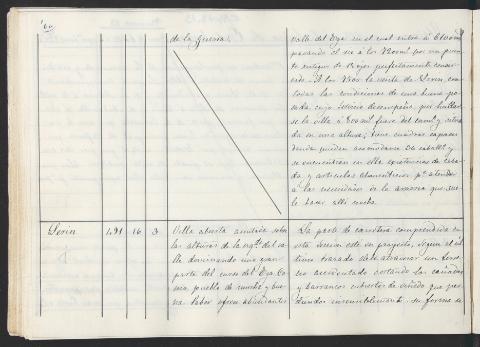 60
de la Guerra.
valle del Ega en el cual entra á
pasando el rio á los por un puen-
te antiguo de perfectamente conser-
vado. A los la venta de Lerin, con
todas las condiciones de una buena po-
sada, cuyo servicio desempeña, por hallar-
se la villa á 800 mts fuera del camo y situa-
da en una altura; tiene cuadras capaces
donde pueden acomodarse 36 caballos y
se encuentran en ella existencias de ceba-
da, y articulos alimenticios pa atender
á las necesidades de la arrieria que sue-
le hacer alli noche.
Lerin
1,91
16
3
Villa abierta sobre
las alturas de la del va-
lle dominando una gran
parte del curso del Ega. Co-
mo pueblo de mucha y bue-
na labor ofrece abundantes
La parte de carretera comprendida en
esta seccion está en proyecto, segun el úl-
timo trazado debe atravesar un terre-
no accidentado cortando las cañadas
y barrancos cubiertos de viñedo que
su forma á